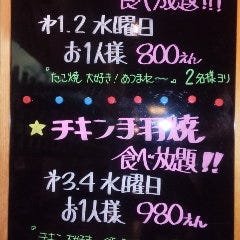 食べ放題!!
第1.2 水曜日
お1人様 800えん
たこ焼 大好き!あつまれ〜 2名様ヨリ
★チキン手羽焼
食べ放題!!
第3.4 水曜日
お1人様 980えん
チキン 大好き